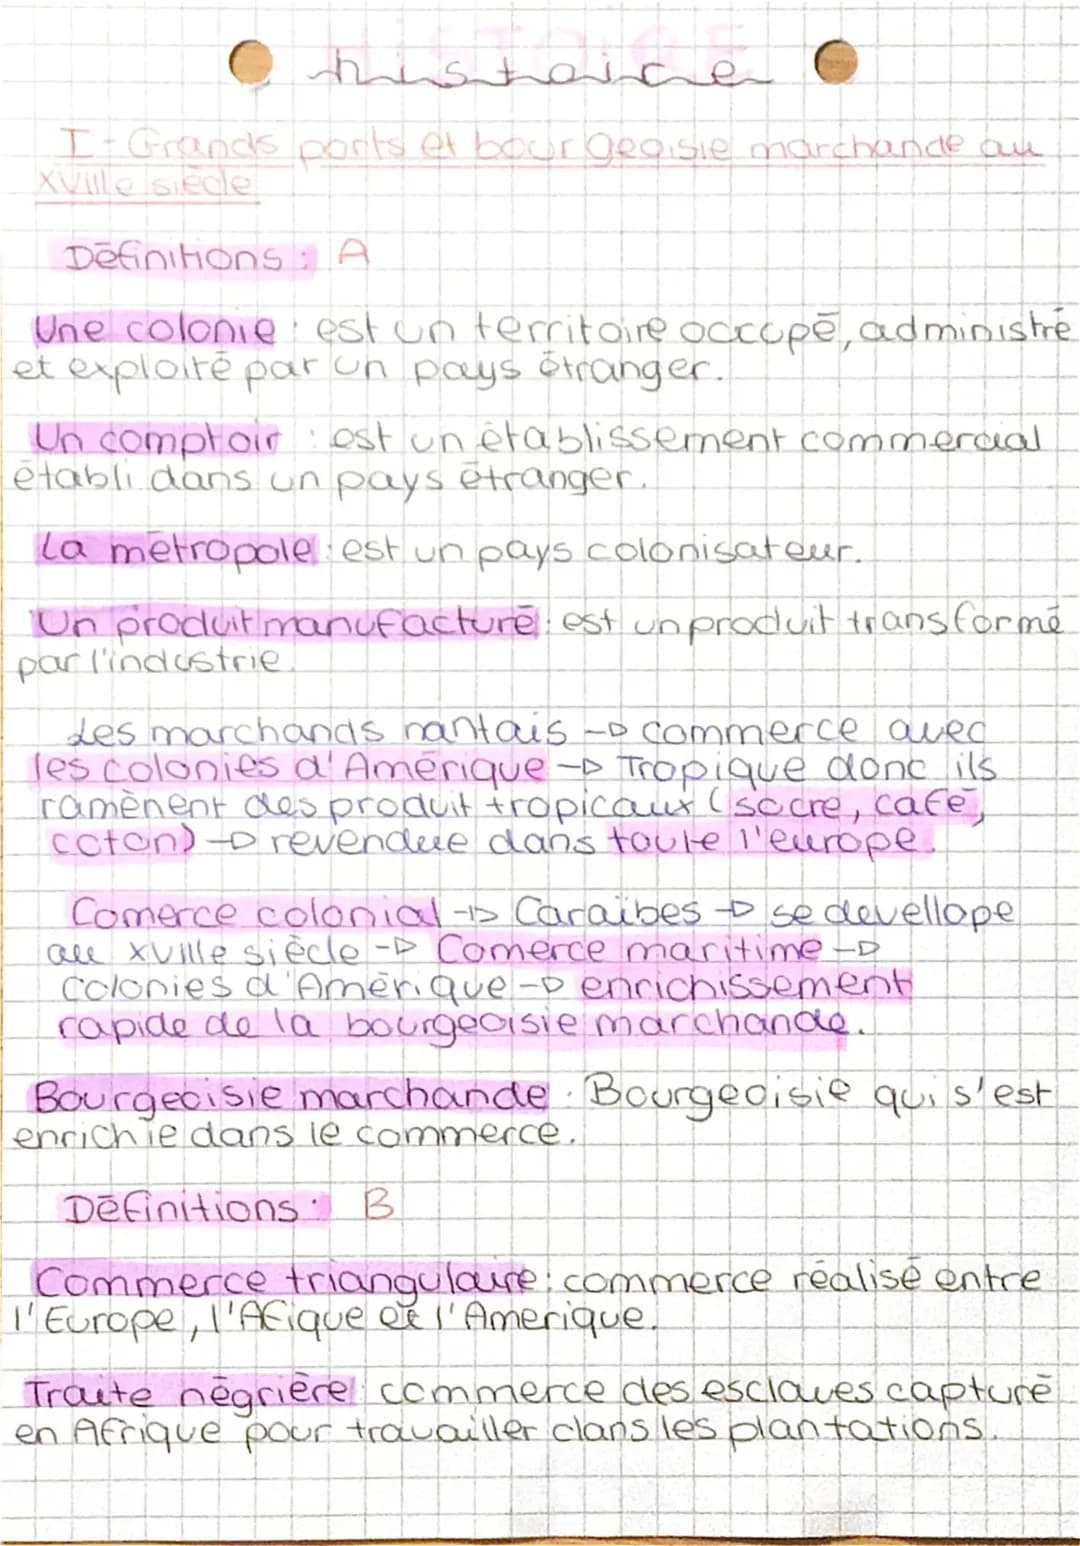 histoire
I-Grands ports et bourgeoisie marchande au
XVIIIe siècle
Définitions : A
Une colonie : est un territoire occupé, administré
et exploité par un pays étranger.
Un comptoir : est un établissement commercial
établi dans un pays étranger.
La métropole : est un pays colonisateur.
Un produit manufacturé : est un produit transformé
par l'industrie.
Les marchands nantais → commerce avec
les colonies d'Amérique → Tropique donc ils
ramènent des produit tropicaux (sucre, café,
coton) → revendue dans toute l'europe.
Comerce colonial → Caraïbes → se devellope
au XVIIIe siècle → Comerce maritime →
colonies d'Amérique → enrichissement
rapide de la bourgeoisie marchande.
Bourgeoisie marchande : Bourgeoisie qui s'est
enrichie dans le commerce.
Définitions : B
Commerce triangulaire : commerce réalisé entre
l'Europe, l'Afique et l'Amerique.
Traite négrière : commerce des esclaves capturé
en Afrique pour travailler dans les plantations.